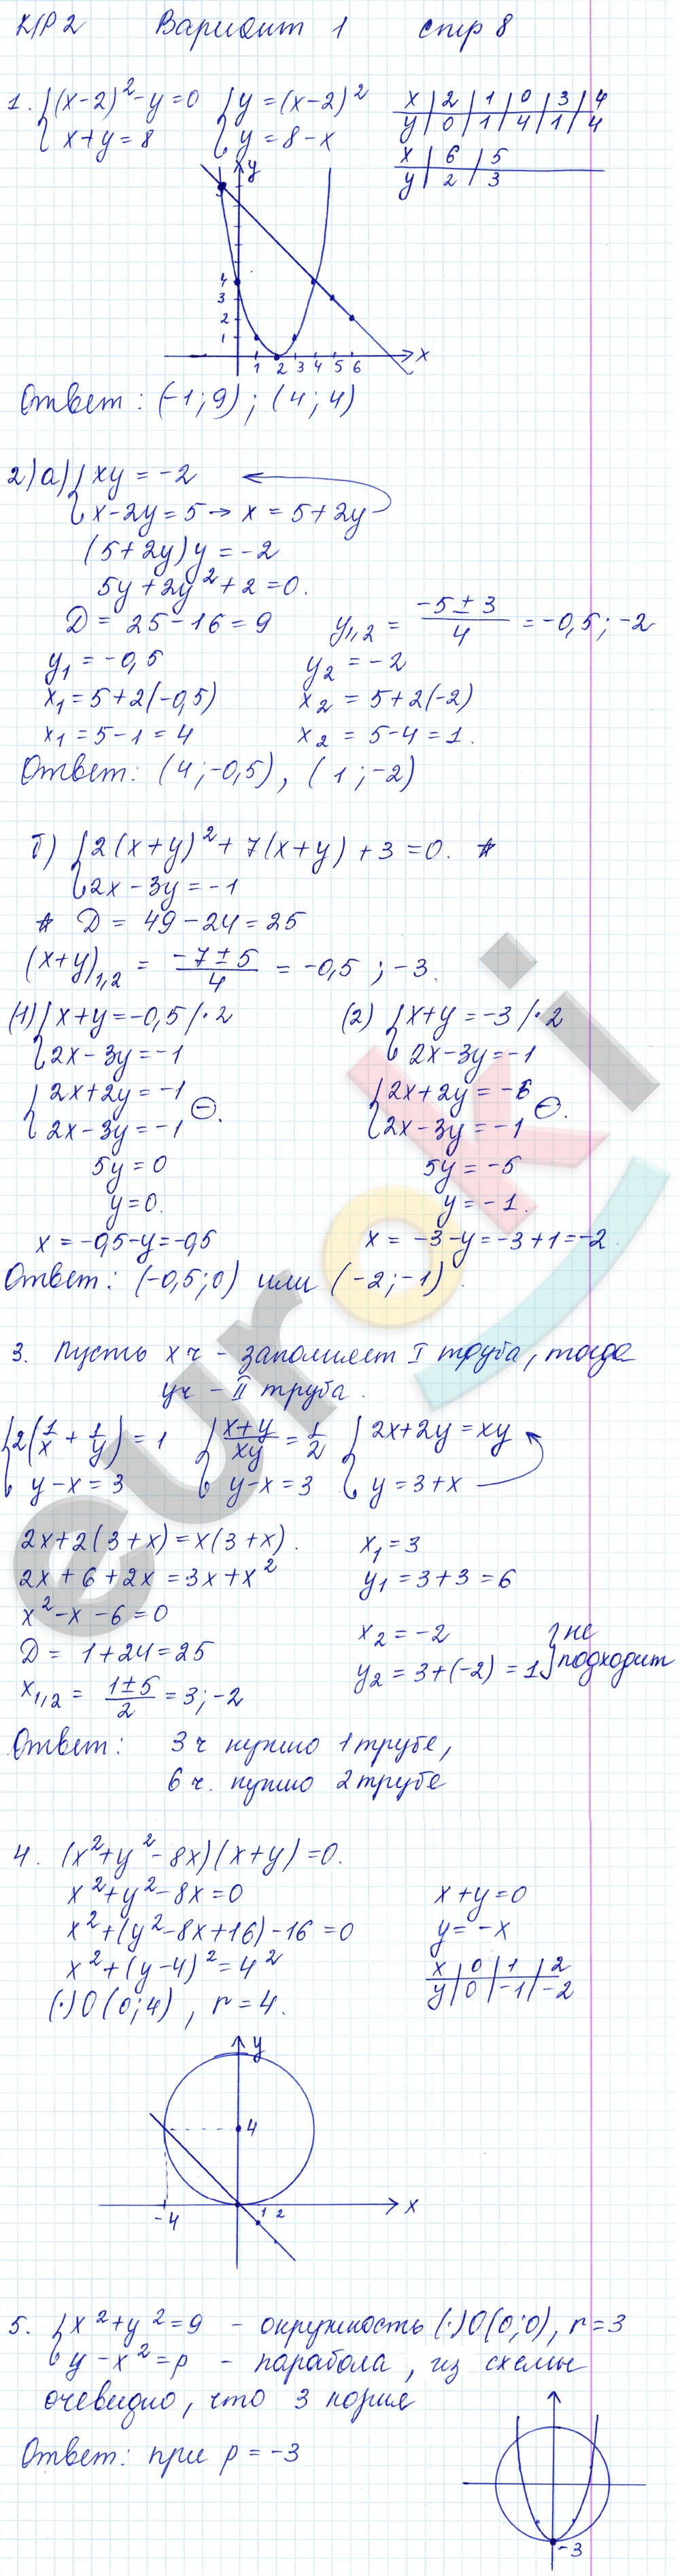 К/Р 2 Вариант 1 стр 8
1. { (x-2)² - y = 0 { y = (x-2)² x | 2 | 1 | 0 | 3 | 4
x + y = 8 y = 8 - x y | 0 | 1 | 4 | 1 | 4
x | 6 | 5
y | 2 | 3
y
9
4
3
2
1
1 2 3 4 5 6 x
Ответ: (-1; 9); (4; 4)
2) а) { xy = -2
x - 2y = 5 → x = 5 + 2y
(5 + 2y) y = -2
5y + 2y² + 2 = 0.
D = 25 - 16 = 9 y₁,₂ = (-5 ± 3)/4 = -0,5; -2
y₁ = -0,5 y₂ = -2
x₁ = 5 + 2(-0,5) x₂ = 5 + 2(-2)
x₁ = 5 - 1 = 4 x₂ = 5 - 4 = 1.
Ответ: (4; -0,5), (1; -2)
б) { 2(x+y)² + 7(x+y) + 3 = 0. *
2x - 3y = -1
* D = 49 - 24 = 25
(x+y)₁,₂ = (-7 ± 5)/4 = -0,5; -3.
(1) { x + y = -0,5 /·2 (2) { x + y = -3 /·2
2x - 3y = -1 2x - 3y = -1
{ 2x + 2y = -1 ⊖. { 2x + 2y = -6 ⊖.
2x - 3y = -1 2x - 3y = -1
5y = 0 5y = -5
y = 0. y = -1.
x = -0,5 - y = -0,5 x = -3 - y = -3 + 1 = -2.
Ответ: (-0,5; 0) или (-2; -1).
3. Пусть x ч - заполняет I труба, тогда
y ч - II труба.
{ 2(1/x + 1/y) = 1 { (x+y)/xy = 1/2 { 2x + 2y = xy
y - x = 3 y - x = 3 y = 3 + x
2x + 2(3 + x) = x(3 + x). x₁ = 3
2x + 6 + 2x = 3x + x² y₁ = 3 + 3 = 6
x² - x - 6 = 0 x₂ = -2 } не
D = 1 + 24 = 25 y₂ = 3 + (-2) = 1 подходит
x₁,₂ = (1 ± 5)/2 = 3; -2
Ответ: 3 ч нужно 1 трубе,
6 ч. нужно 2 трубе
4. (x² + y² - 8x)(x + y) = 0.
x² + y² - 8x = 0 x + y = 0
x² + (y² - 8x + 16) - 16 = 0 y = -x
x² + (y - 4)² = 4² x | 0 | 1 | 2
(·) O (0; 4), r = 4. y | 0 | -1 | -2
y
4
-4 1 2 x
5. { x² + y² = 9 - окружность (·) O (0; 0), r = 3
y - x² = p - парабола, из схемы
очевидно, что 3 корня
Ответ: при p = -3
-3
euroki